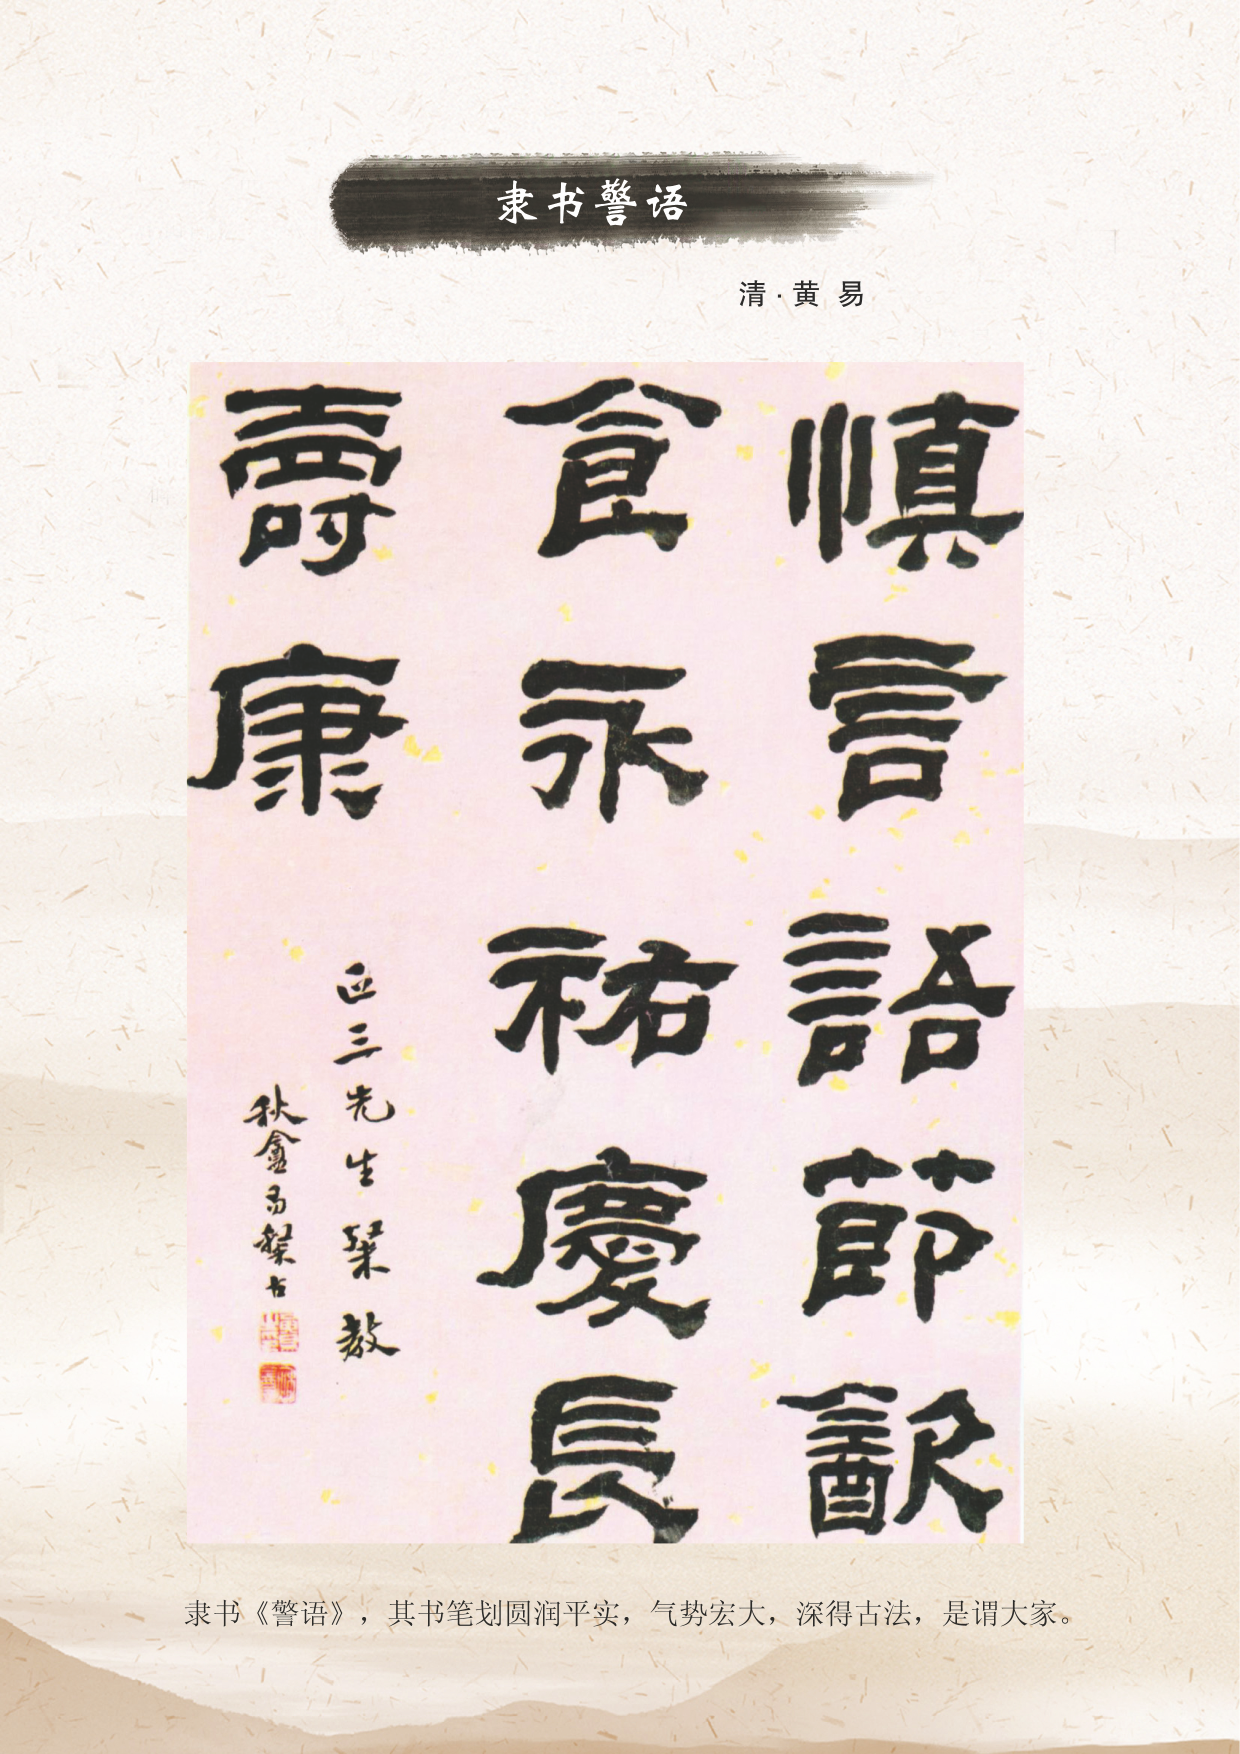 隶书警语
清·黄 易
慎言語節飲
食永祐慶長
壽康
正三先生棐教
秋盦易槩古
隶书《警语》，其书笔划圆润平实，气势宏大，深得古法，是谓大家。